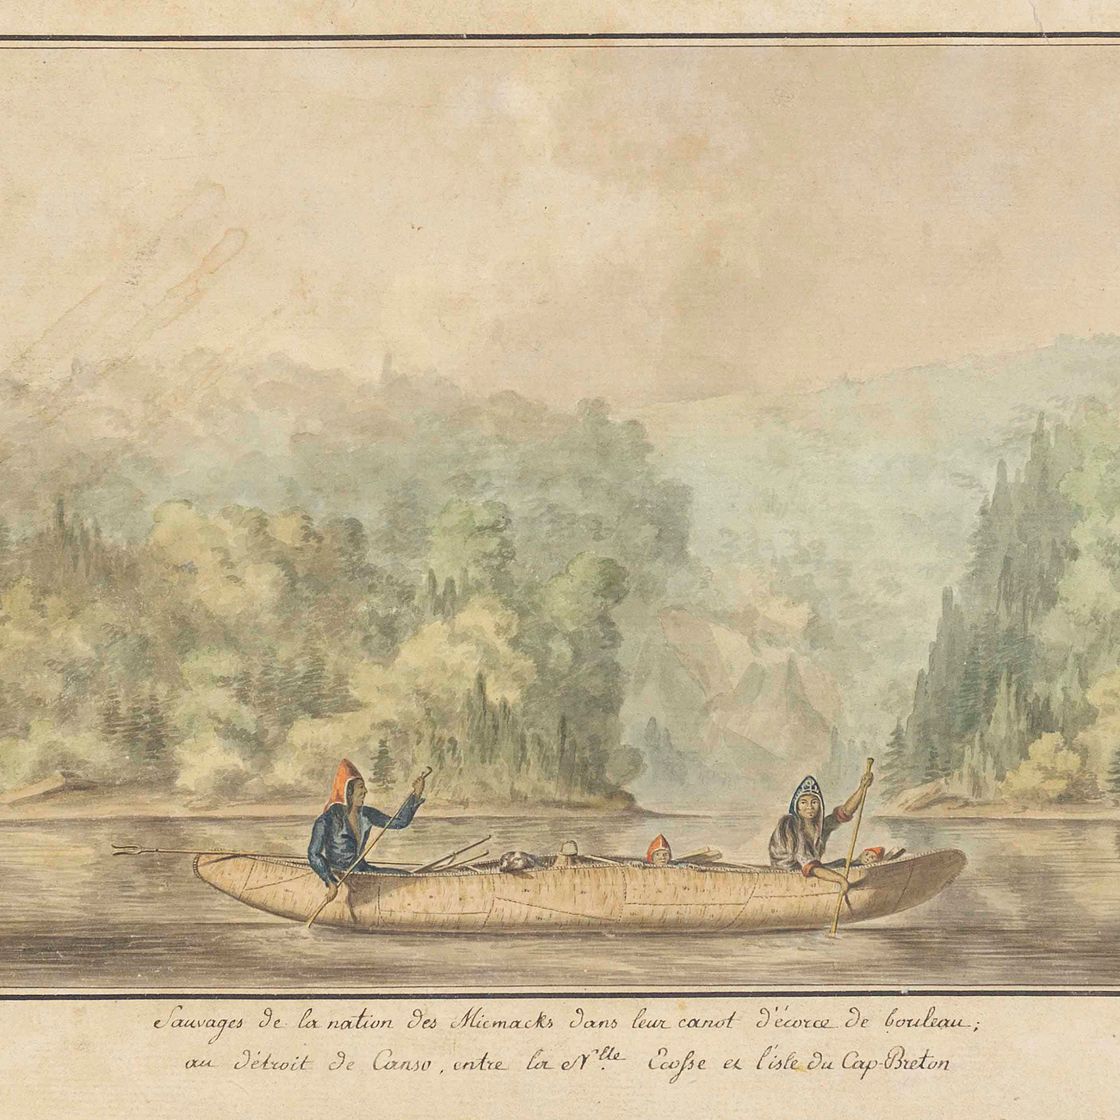 Sauvages de la nation des Micmacks dans leur canot d'écorce de bouleau;
au détroit de Canso, entre la N.lle Ecosse et l'isle du Cap-Breton